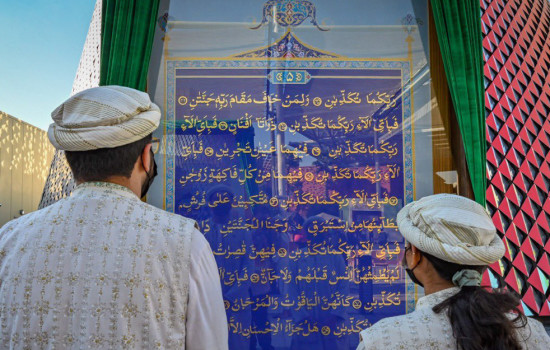 ﴿٥﴾
رَبِّكُمَا تُكَذِّبَٰنِ ۝ وَلِمَنْ خَافَ مَقَامَ رَبِّهِ جَنَّتَٰنِ ۝
فَبِأَيِّ ءَالَآءِ رَبِّكُمَا تُكَذِّبَانِ ۝ ذَوَاتَآ أَفْنَانٍ ۝ فَبِأَيِّ ءَالَآءِ
رَبِّكُمَا تُكَذِّبَانِ ۝ فِيهِمَا عَيْنَانِ تَجْرِيَٰنِ ۝ فَبِأَيِّ
ءَالَآءِ رَبِّكُمَا تُكَذِّبَانِ ۝ فِيهِمَا مِن كُلِّ فَٰكِهَةٍ زَوْجَٰنِ
۝ فَبِأَيِّ ءَالَآءِ رَبِّكُمَا تُكَذِّبَانِ ۝ مُتَّكِـِٔينَ عَلَىٰ فُرُشٍ
بَطَآئِنُهَا مِنْ إِسْتَبْرَقٍ وَجَنَى ٱلْجَنَّتَيْنِ دَانٍ
فَبِأَيِّ ءَالَآءِ رَبِّكُمَا تُكَذِّبَانِ ۝ فِيهِنَّ قَٰصِرَٰتُ
لَمْ يَطْمِثْهُنَّ إِنسٌ قَبْلَهُمْ وَلَا جَآنٌّ ۝ فَبِأَيِّ ءَالَآءِ
تُكَذِّبَانِ ۝ كَأَنَّهُنَّ ٱلْيَاقُوتُ وَٱلْمَرْجَانُ
تُكَذِّبَانِ ۝ هَلْ جَزَآءُ ٱلْإِحْسَٰنِ إِلَّا